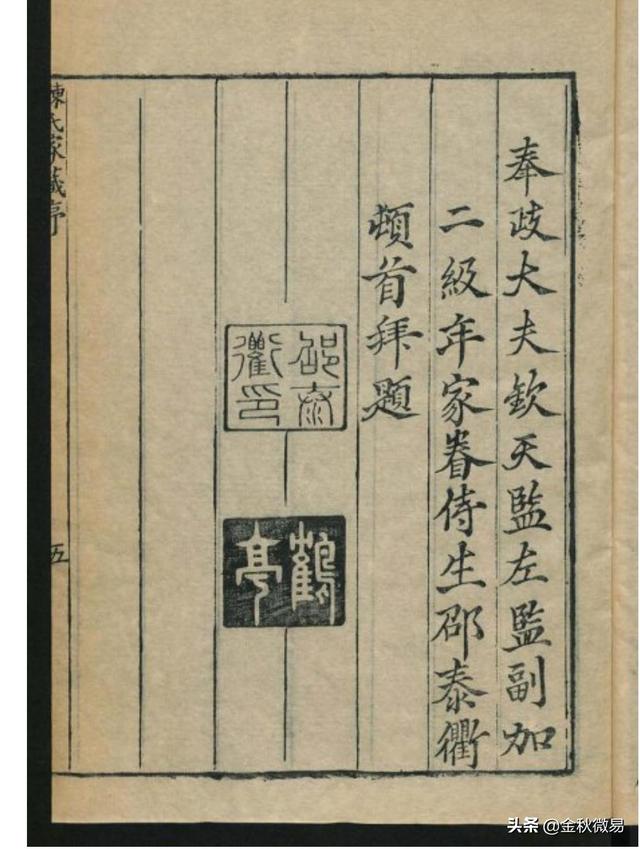 奉政大夫欽天監左監副加
二級年家眷侍生邵泰衢
頓首拜題
邵泰
衢印
鶴
亭
陳氏家藏序
五
头条 @金秋微易